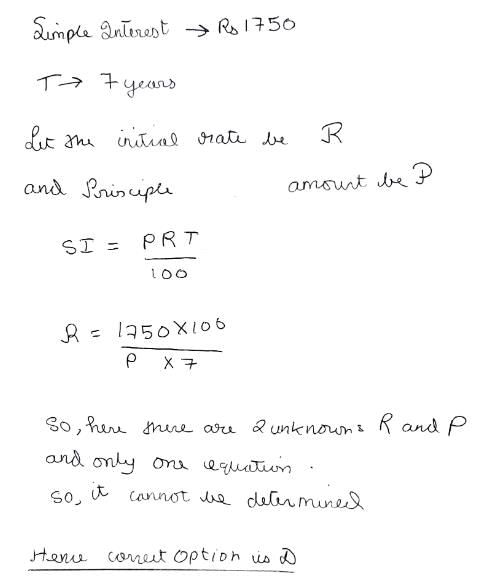 Simple Interest → Rs 1750
T → 7 years
Let the initial rate be R
and Principle amount be P
SI = PRT
100
R = 1750 × 100
P × 7
So, here there are 2 unknowns R and P
and only one equation .
So, it cannot be determined
Hence correct option is D